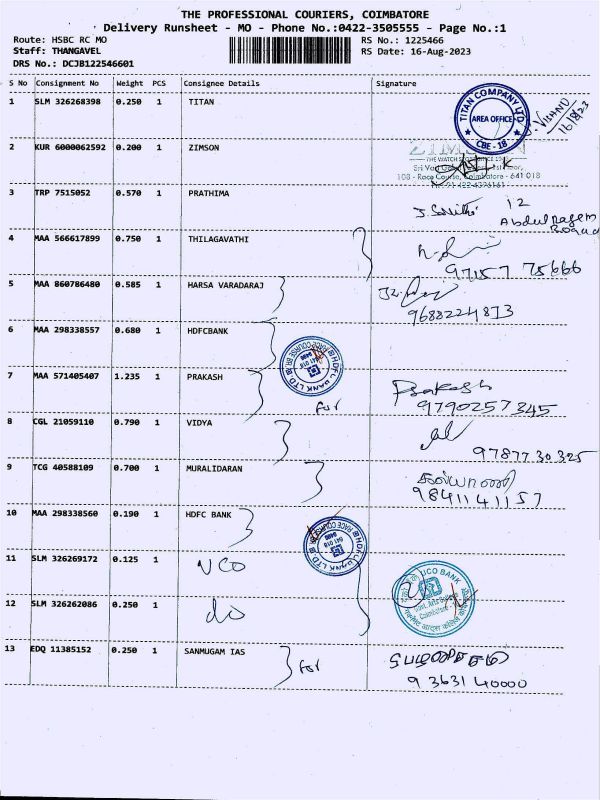 THE PROFESSIONAL COURIERS, COIMBATORE
Delivery Runsheet - MO - Phone No.:0422-3505555 - Page No.:1
Route: HSBC RC MO RS No.: 1225466
Staff: THANGAVEL RS Date: 16-Aug-2023
DRS No.: DCJB122546601
S No Consignment No Weight PCS Consignee Details Signature
1 SLM 326268398 0.250 1 TITAN
TITAN COMPANY LTD
AREA OFFICE
CBE - 18
16/8/23
2 KUR 6000062592 0.200 1 ZIMSON
ZIMSON
108 - Race Course, Coimbatore - 641 018
3 TRP 7515052 0.570 1 PRATHIMA
12
4 MAA 566617899 0.750 1 THILAGAVATHI
97157 75666
5 MAA 860786480 0.585 1 HARSA VARADARAJ
9688224813
6 MAA 298338557 0.680 1 HDFCBANK
7 MAA 571405407 1.235 1 PRAKASH
for
Prakash
9790257345
8 CGL 21059110 0.790 1 VIDYA
97877 30325
9 TCG 40588109 0.700 1 MURALIDARAN
9841141157
10 MAA 298338560 0.190 1 HDFC BANK
11 SLM 326269172 0.125 1 UCO
UCO BANK
12 SLM 326262086 0.250 1 do
Govt. Arts College
Coimbatore
13 EDQ 11385152 0.250 1 SANMUGAM IAS
for
9 3631 40000